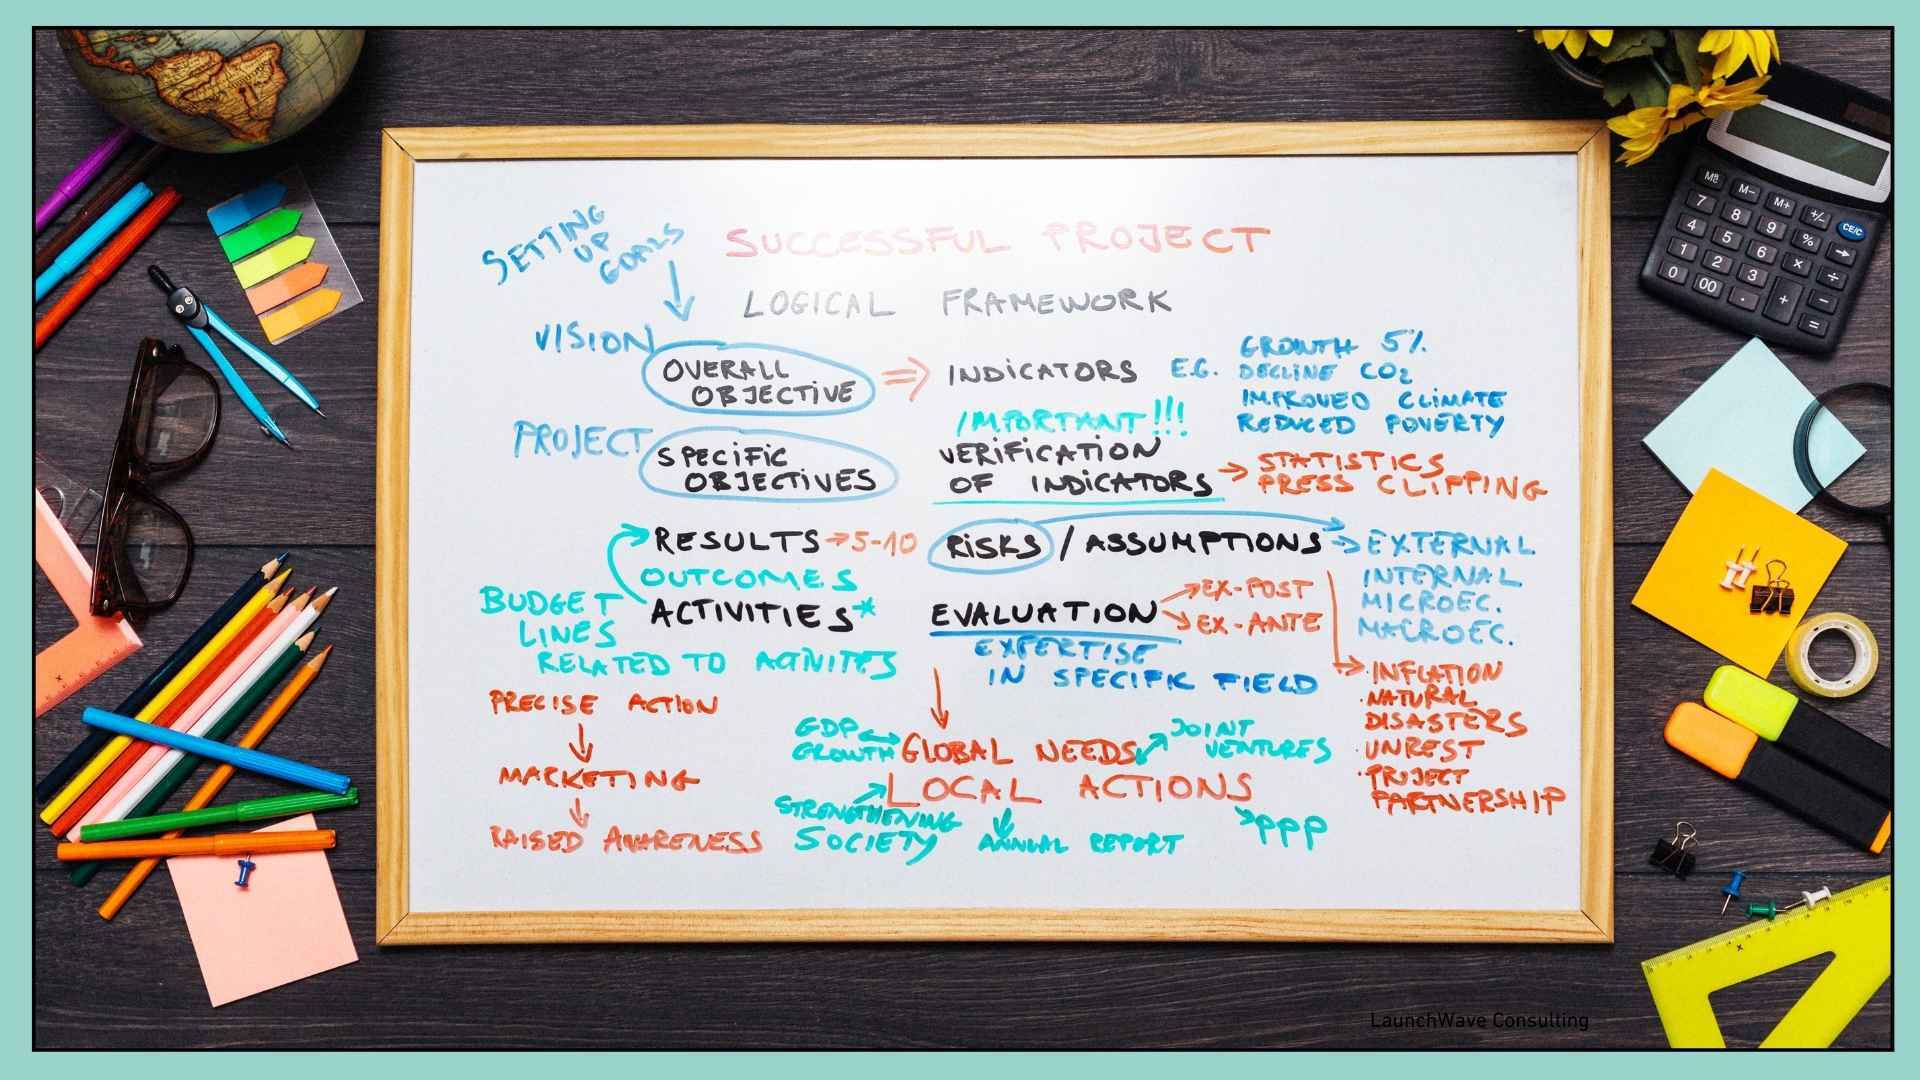 SETTING
UP
GOALS
SUCCESSFUL PROJECT
LOGICAL FRAMEWORK
VISION
OVERALL
OBJECTIVE
INDICATORS E.G.
GROWTH 5%
DECLINE CO2
IMPROVED CLIMATE
REDUCED POVERTY
PROJECT
SPECIFIC
OBJECTIVES
IMPORTANT!!!
VERIFICATION
OF INDICATORS
STATISTICS
PRESS CLIPPING
RESULTS → 5-10
OUTCOMES
ACTIVITIES*
BUDGET
LINES
RELATED TO ACTIVITES
RISKS / ASSUMPTIONS
EXTERNAL
INTERNAL
MICROEC.
MACROEC.
EVALUATION
EX-POST
EX-ANTE
EXPERTISE
IN SPECIFIC FIELD
· INFLATION
· NATURAL
DISASTERS
· UNREST
· PROJECT
PARTNERSHIP
PRECISE ACTION
MARKETING
RAISED AWARENESS
GDP
GROWTH
GLOBAL NEEDS
LOCAL ACTIONS
JOINT
VENTURES
STRENGTHENING
SOCIETY
ANNUAL REPORT
PPP
M8 M- M+ +/- CE/C
7 8 9 % →
4 5 6 × ÷
1 2 3 + −
0 00 . =
LaunchWave Consulting